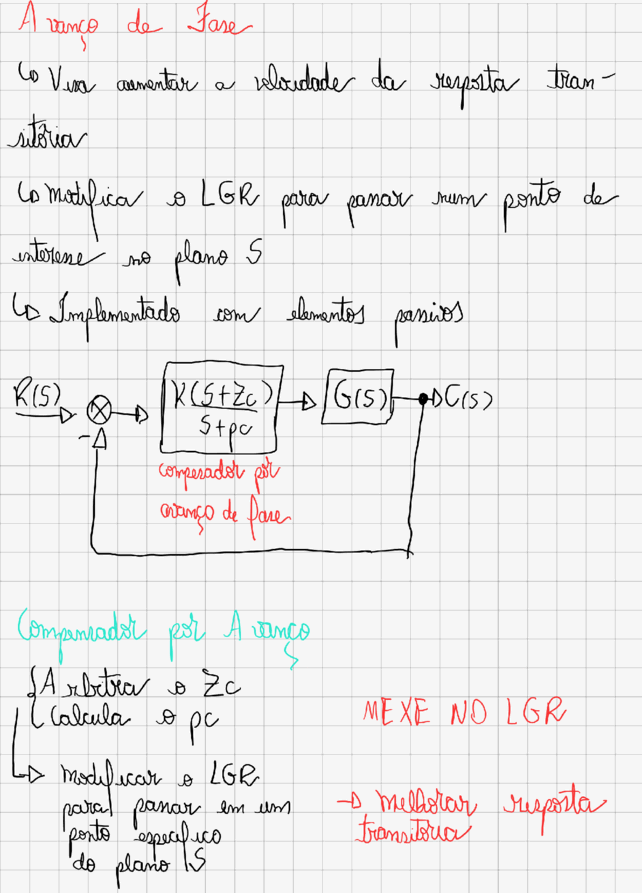 Avanço de Fase
↳ Visa aumentar a velocidade da resposta tran-
sitória
↳ Modifica o LGR para passar num ponto de
interesse no plano S
↳ Implementado com elementos passivos
R(S) K(S+Zc) G(S) C(S)
S+pc
-
compesador por
avanço de fase
Compensador por Avanço
Arbitra o Zc
Calcula o pc
MEXE NO LGR
Modificar o LGR
para passar em um
ponto específico
do plano S
→ Melhorar resposta
transitória